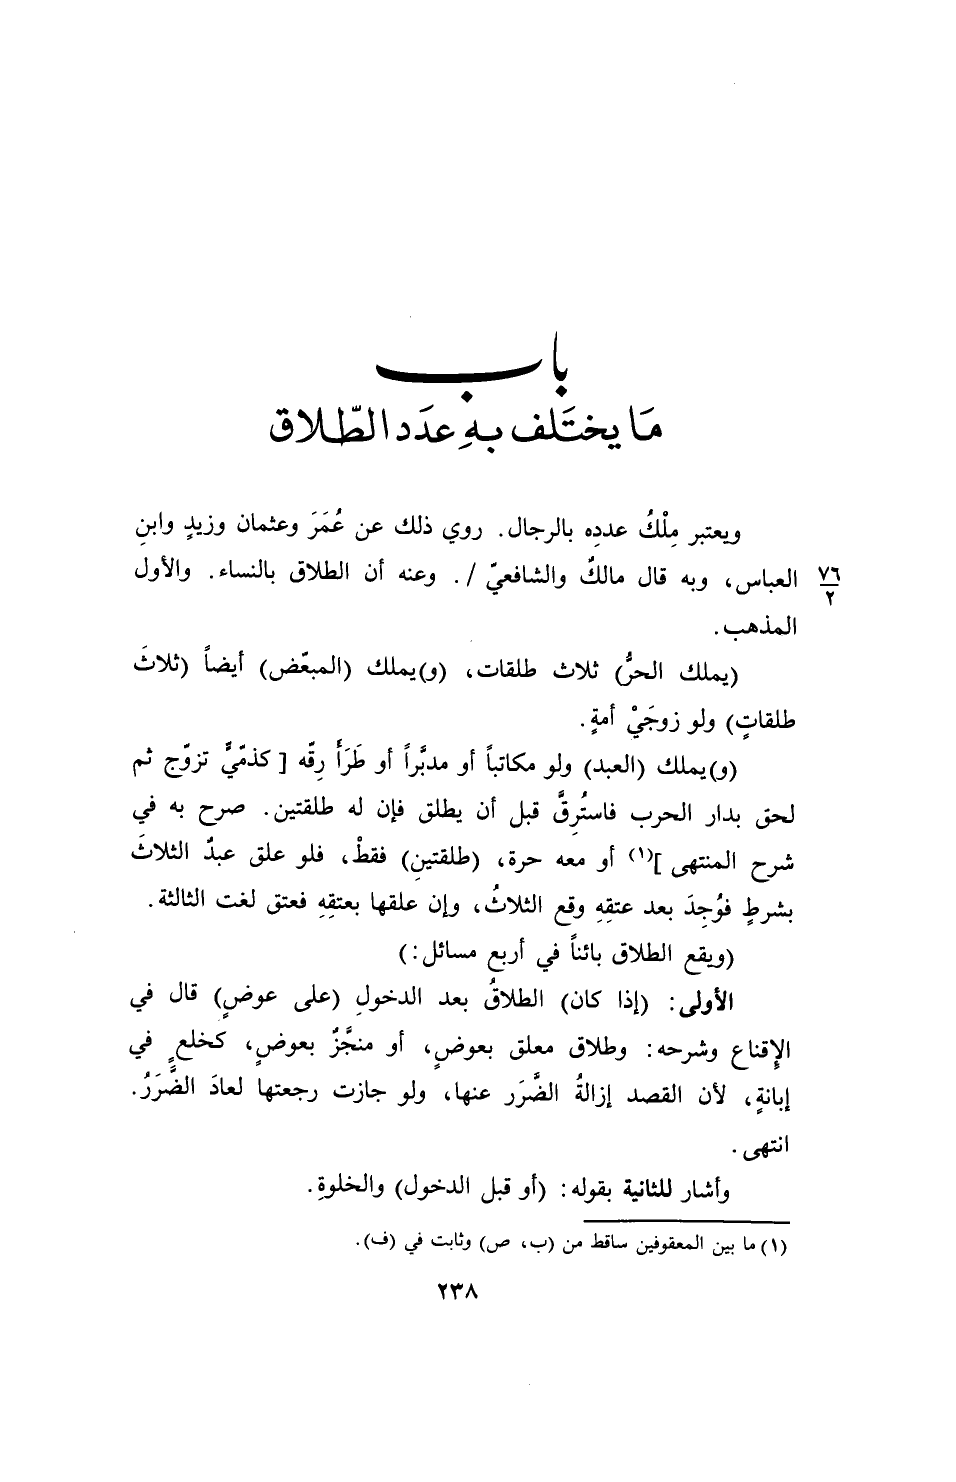 باب
مَا يختَلف بهِ عدَد الطّلاق
ويعتبر مِلْكُ عددِه بالرجال. روي ذلك عن عُمَرَ وعثمان وزيدٍ وابنِ
العباس، وبه قال مالكٌ والشافعيّ /. وعنه أن الطلاق بالنساء. والأول
٧٦
٢
المذهب.
(يملك الحرُّ) ثلاث طلقات، (و)يملك (المبعّض) أيضاً (ثلاثَ
طلقاتٍ) ولو زوجَيْ أمةٍ.
(و)يملك (العبد) ولو مكاتباً أو مدبَّراً أو طَرَأَ رِقّه [كذمّيٍّ تزوّج ثم
لحق بدار الحرب فاستُرِقَّ قبل أن يطلق فإن له طلقتين. صرح به في
شرح المنتهى](١) أو معه حرة، (طلقتينِ) فقطْ، فلو علق عبدٌ الثلاثَ
بشرطٍ فوُجِدَ بعد عتقِهِ وقع الثلاثُ، وإن علقها بعتقِهِ فعتق لغت الثالثة.
(ويقع الطلاق بائناً في أربع مسائل:)
الأولى: (إذا كان) الطلاقُ بعد الدخولِ (على عوضٍ) قال في
الإقناع وشرحه: وطلاق معلق بعوضٍ، أو منجَّزٌ بعوضٍ، كخلعٍ في
إبانةٍ، لأن القصد إزالةُ الضَّرَر عنها، ولو جازت رجعتها لعادَ الضَّرَرُ.
انتهى.
وأشار للثانية بقوله: (أو قبل الدخول) والخلوةِ.
(١) ما بين المعقوفين ساقط من (ب، ص) وثابت في (ف).
٢٣٨